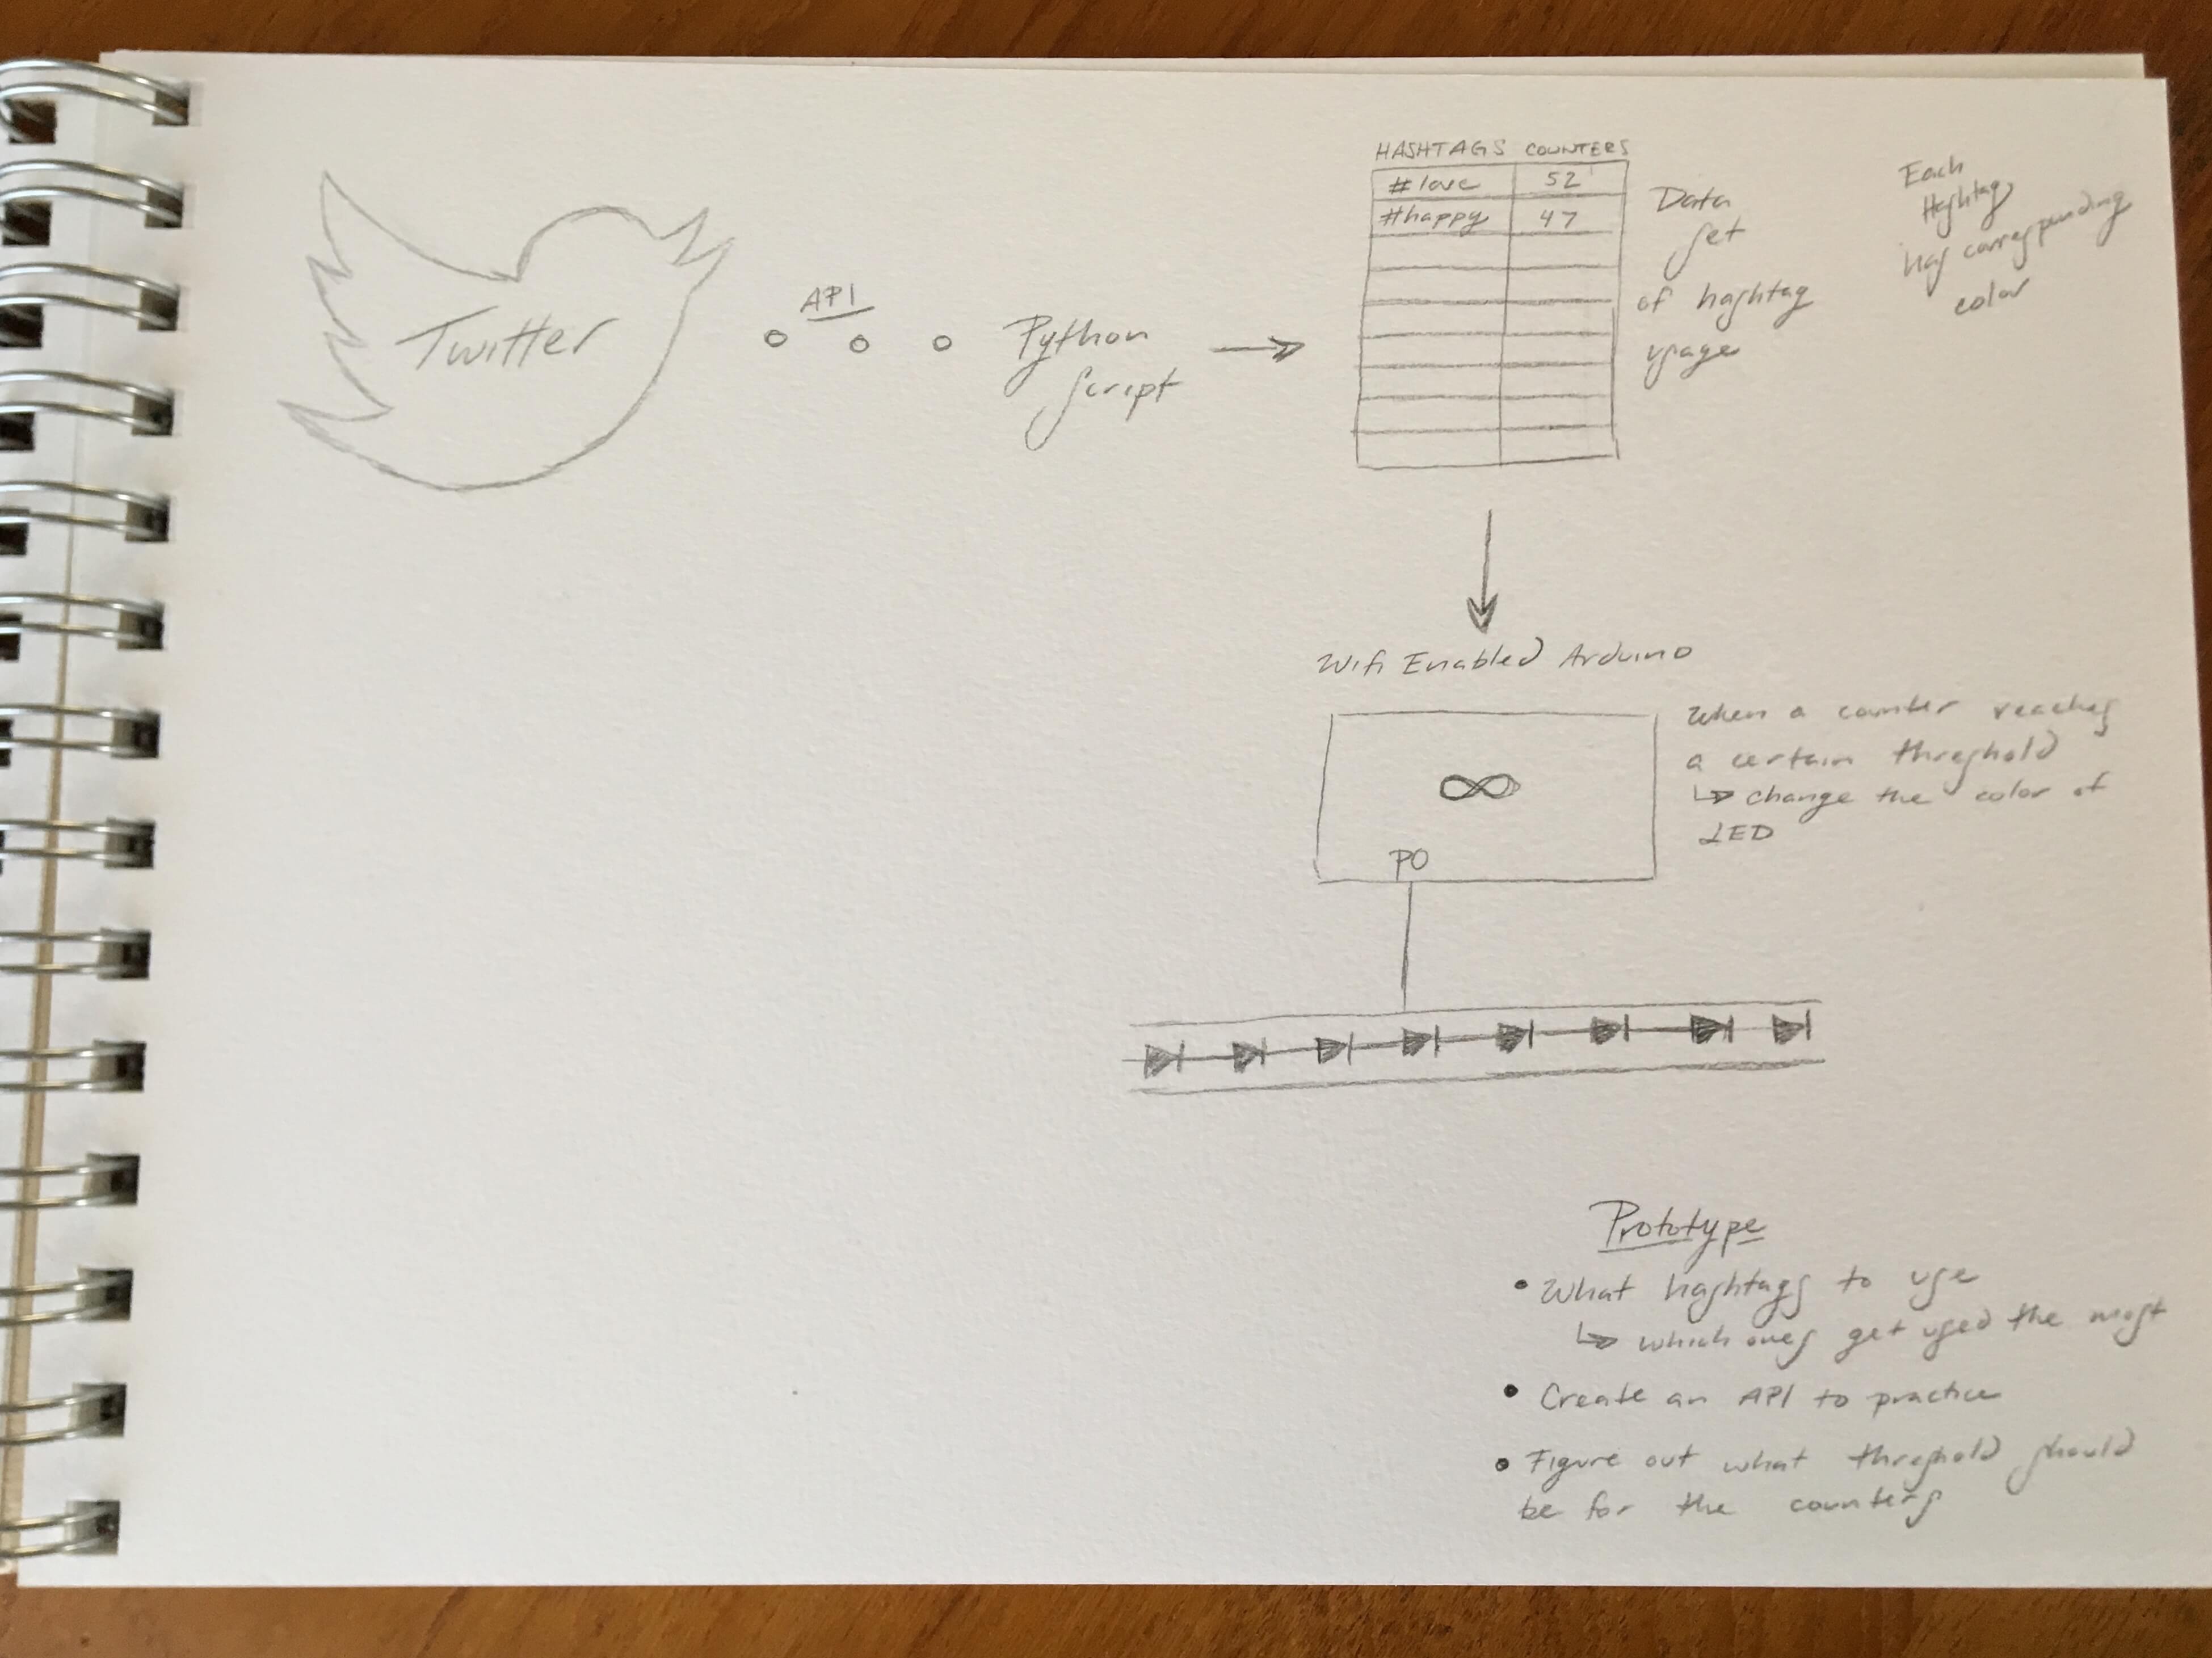 Twitter
API
Python
script
HASHTAGS COUNTERS
#love 52
#happy 47
Data
set
of hashtag
usage
Each
Hashtag
has corresponding
color
Wifi Enabled Arduino
∞
PO
When a counter reaches
a certain threshold
↳ change the color of
LED
Prototype
• What hashtags to use
↳ which ones get used the most
• Create an API to practice
• Figure out what threshold should
be for the counters